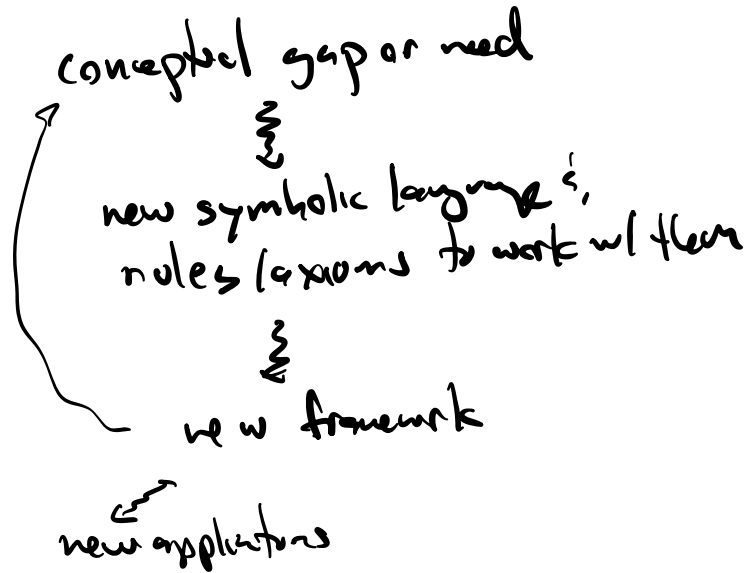 conceptual gap or need
new symbolic language &
rules/axioms to work w/ them
new framework
new applications